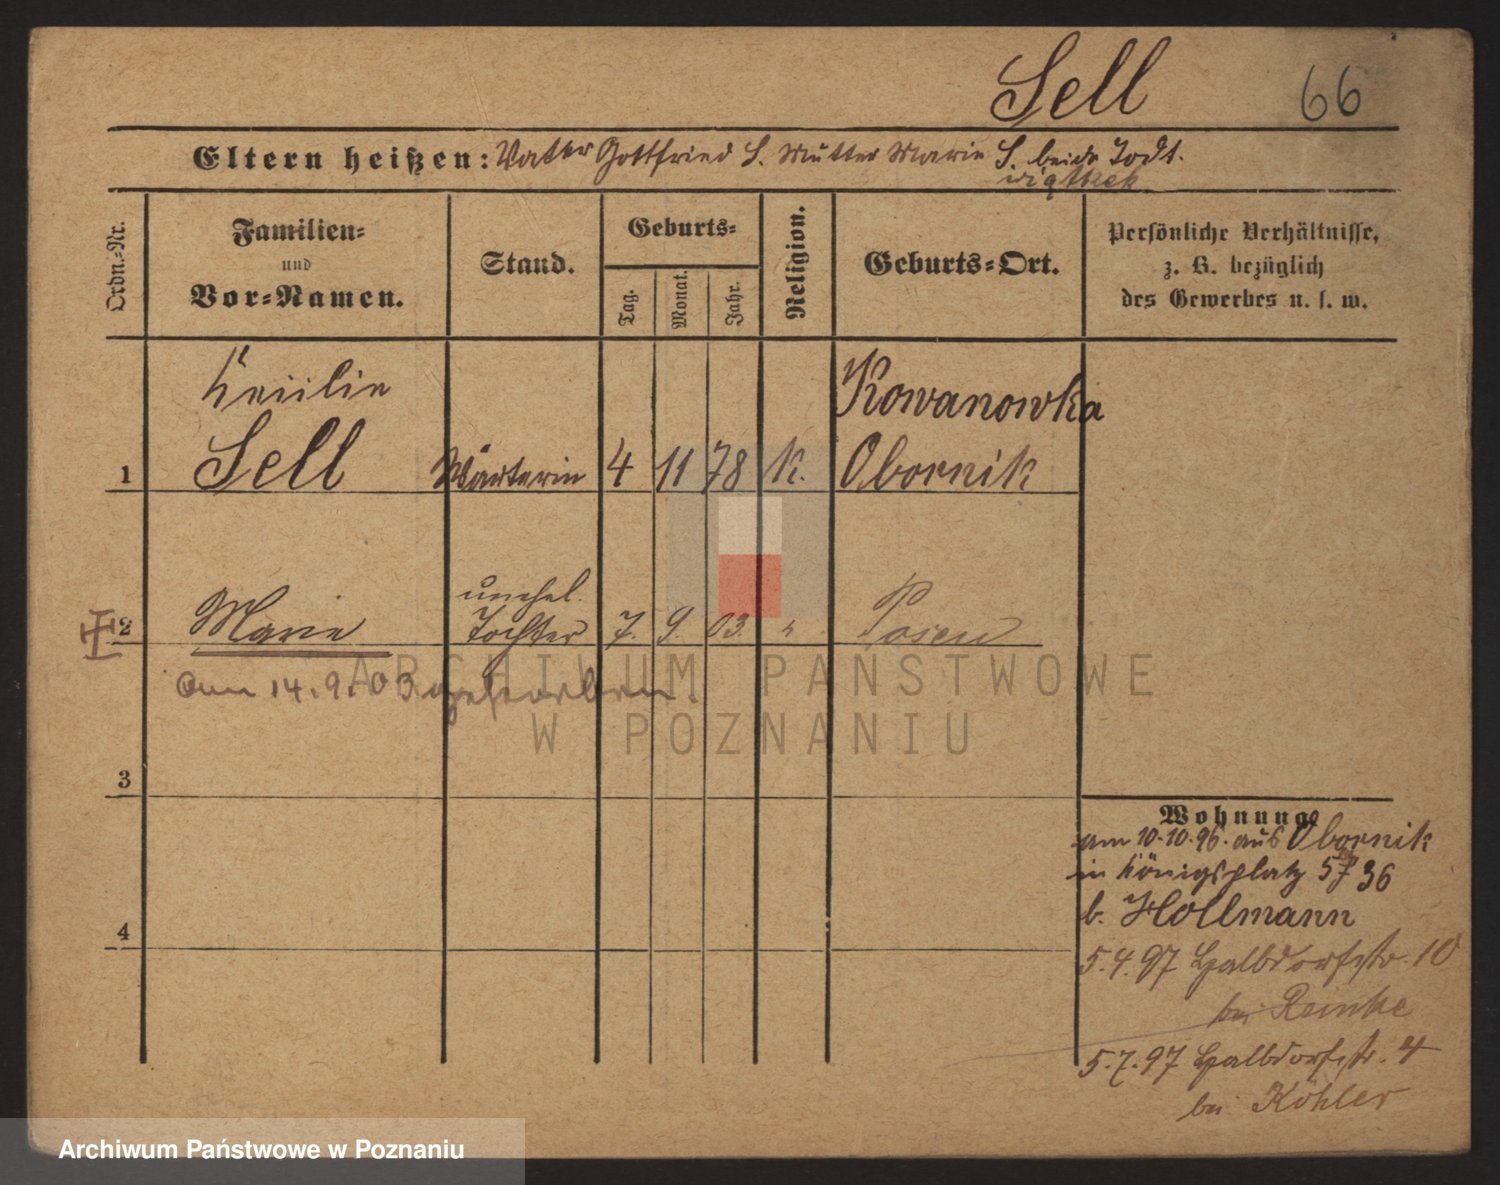 Sell
66
Eltern heißen: Vater Gottfried S. Mutter Marie S. beide Todt.
Ordn.-Nr.
Familien-
und
Vor-Namen.
Stand.
Geburts-
Tag.
Monat.
Jahr.
Religion.
Geburts-Ort.
Persönliche Verhältnisse,
z. B. bezüglich
des Gewerbes u. s. w.
Sell
1
Wärterin 4 11 78 K.
Kowanowka
Obornik
2
Marie
unehel.
Tochter
7. 9. 03. "
Posen
am 14.9.03 gestorben.
3
4
Wohnung
am 10.10.96. aus Obornik
in Königsplatz 36
b. Hollmann
5.4.97 Halbdorfstr. 10
bei Reinke
5.7.97 Halbdorfstr. 4
bei Köhler
ARCHIWUM PAŃSTWOWE
W POZNANIU
Archiwum Państwowe w Poznaniu